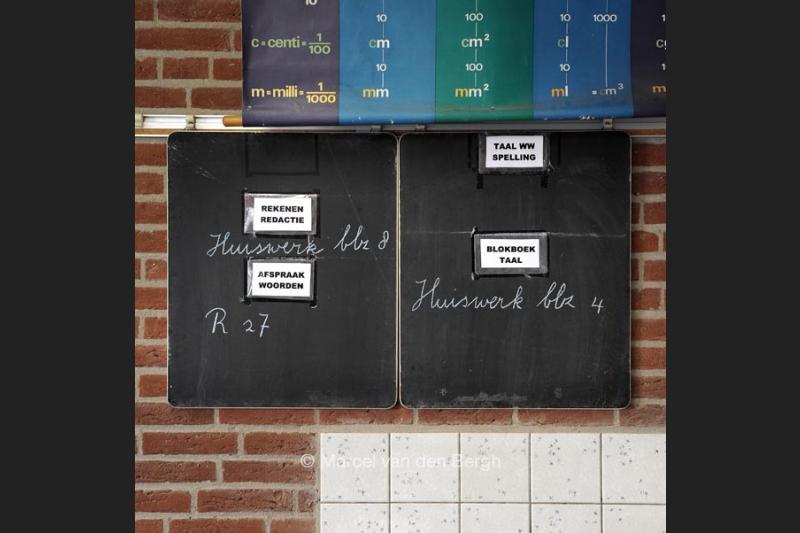 10 10 100 10 1000
c = centi = 1/100 cm cm² cl
10 100 10
m = milli = 1/1000 mm mm² ml = cm³ m
REKENEN
REDACTIE
Huiswerk blz 8
AFSPRAAK
WOORDEN
R 27
TAAL WW
SPELLING
BLOKBOEK
TAAL
Huiswerk blz 4
© Marcel van den Bergh